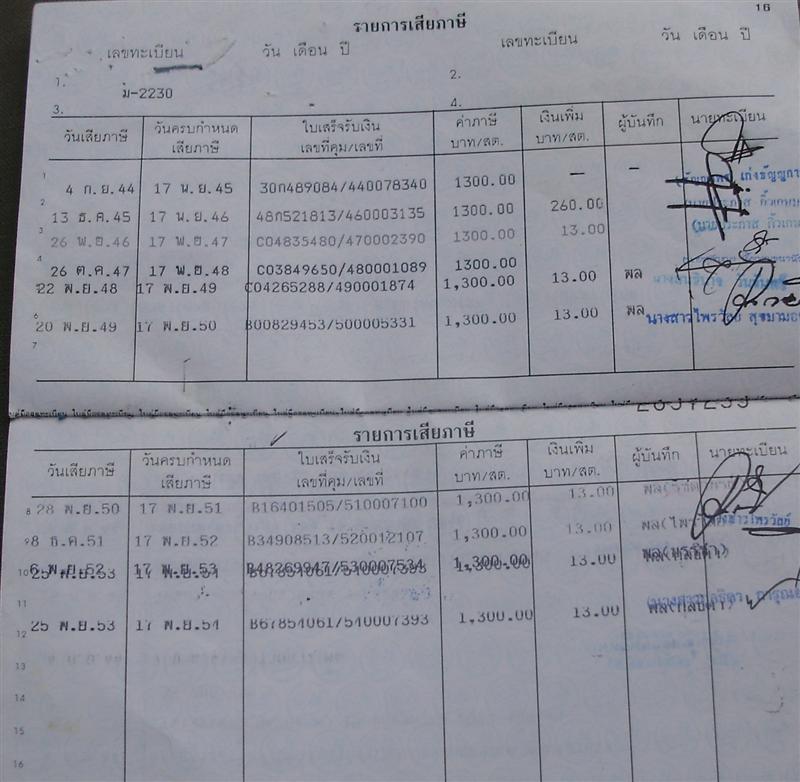 16
รายการเสียภาษี
เลขทะเบียน วัน เดือน ปี เลขทะเบียน วัน เดือน ปี
1. 2.
ม-2230
3. 4.
วันเสียภาษี วันครบกำหนด เสียภาษี ใบเสร็จรับเงิน เลขที่คุม/เลขที่ ค่าภาษี บาท/สต. เงินเพิ่ม บาท/สต. ผู้บันทึก นายทะเบียน
1 4 ก.ย.44 17 พ.ย.45 30ก489084/440078340 1300.00 — —
2 13 ธ.ค.45 17 พ.ย.46 48ก521813/460003135 1300.00 260.00
3 26 พ.ย.46 17 พ.ย.47 C04835480/470002390 1300.00 13.00
4 26 ต.ค.47 17 พ.ย.48 C03849650/480001089 1300.00
22 พ.ย.48 17 พ.ย.49 C04265288/490001874 1,300.00 13.00 พล
6 20 พ.ย.49 17 พ.ย.50 B00829453/500005331 1,300.00 13.00 พล นางสาวไพรวัลย์
7
รายการเสียภาษี
วันเสียภาษี วันครบกำหนด เสียภาษี ใบเสร็จรับเงิน เลขที่คุม/เลขที่ ค่าภาษี บาท/สต. เงินเพิ่ม บาท/สต. ผู้บันทึก นายทะเบียน
8 28 พ.ย.50 17 พ.ย.51 B16401505/510007100 1,300.00 13.00
9 8 ธ.ค.51 17 พ.ย.52 B34908513/520012107 1,300.00 13.00
6 พ.ย.52 17 พ.ย.53 B48269947/530007534 1,300.00
10 25 พ.ย.53 17 พ.ย.54 B67854061/540007393 1,300.00 13.00
11
12 25 พ.ย.53 17 พ.ย.54 B67854061/540007393 1,300.00 13.00
13
14
15
16